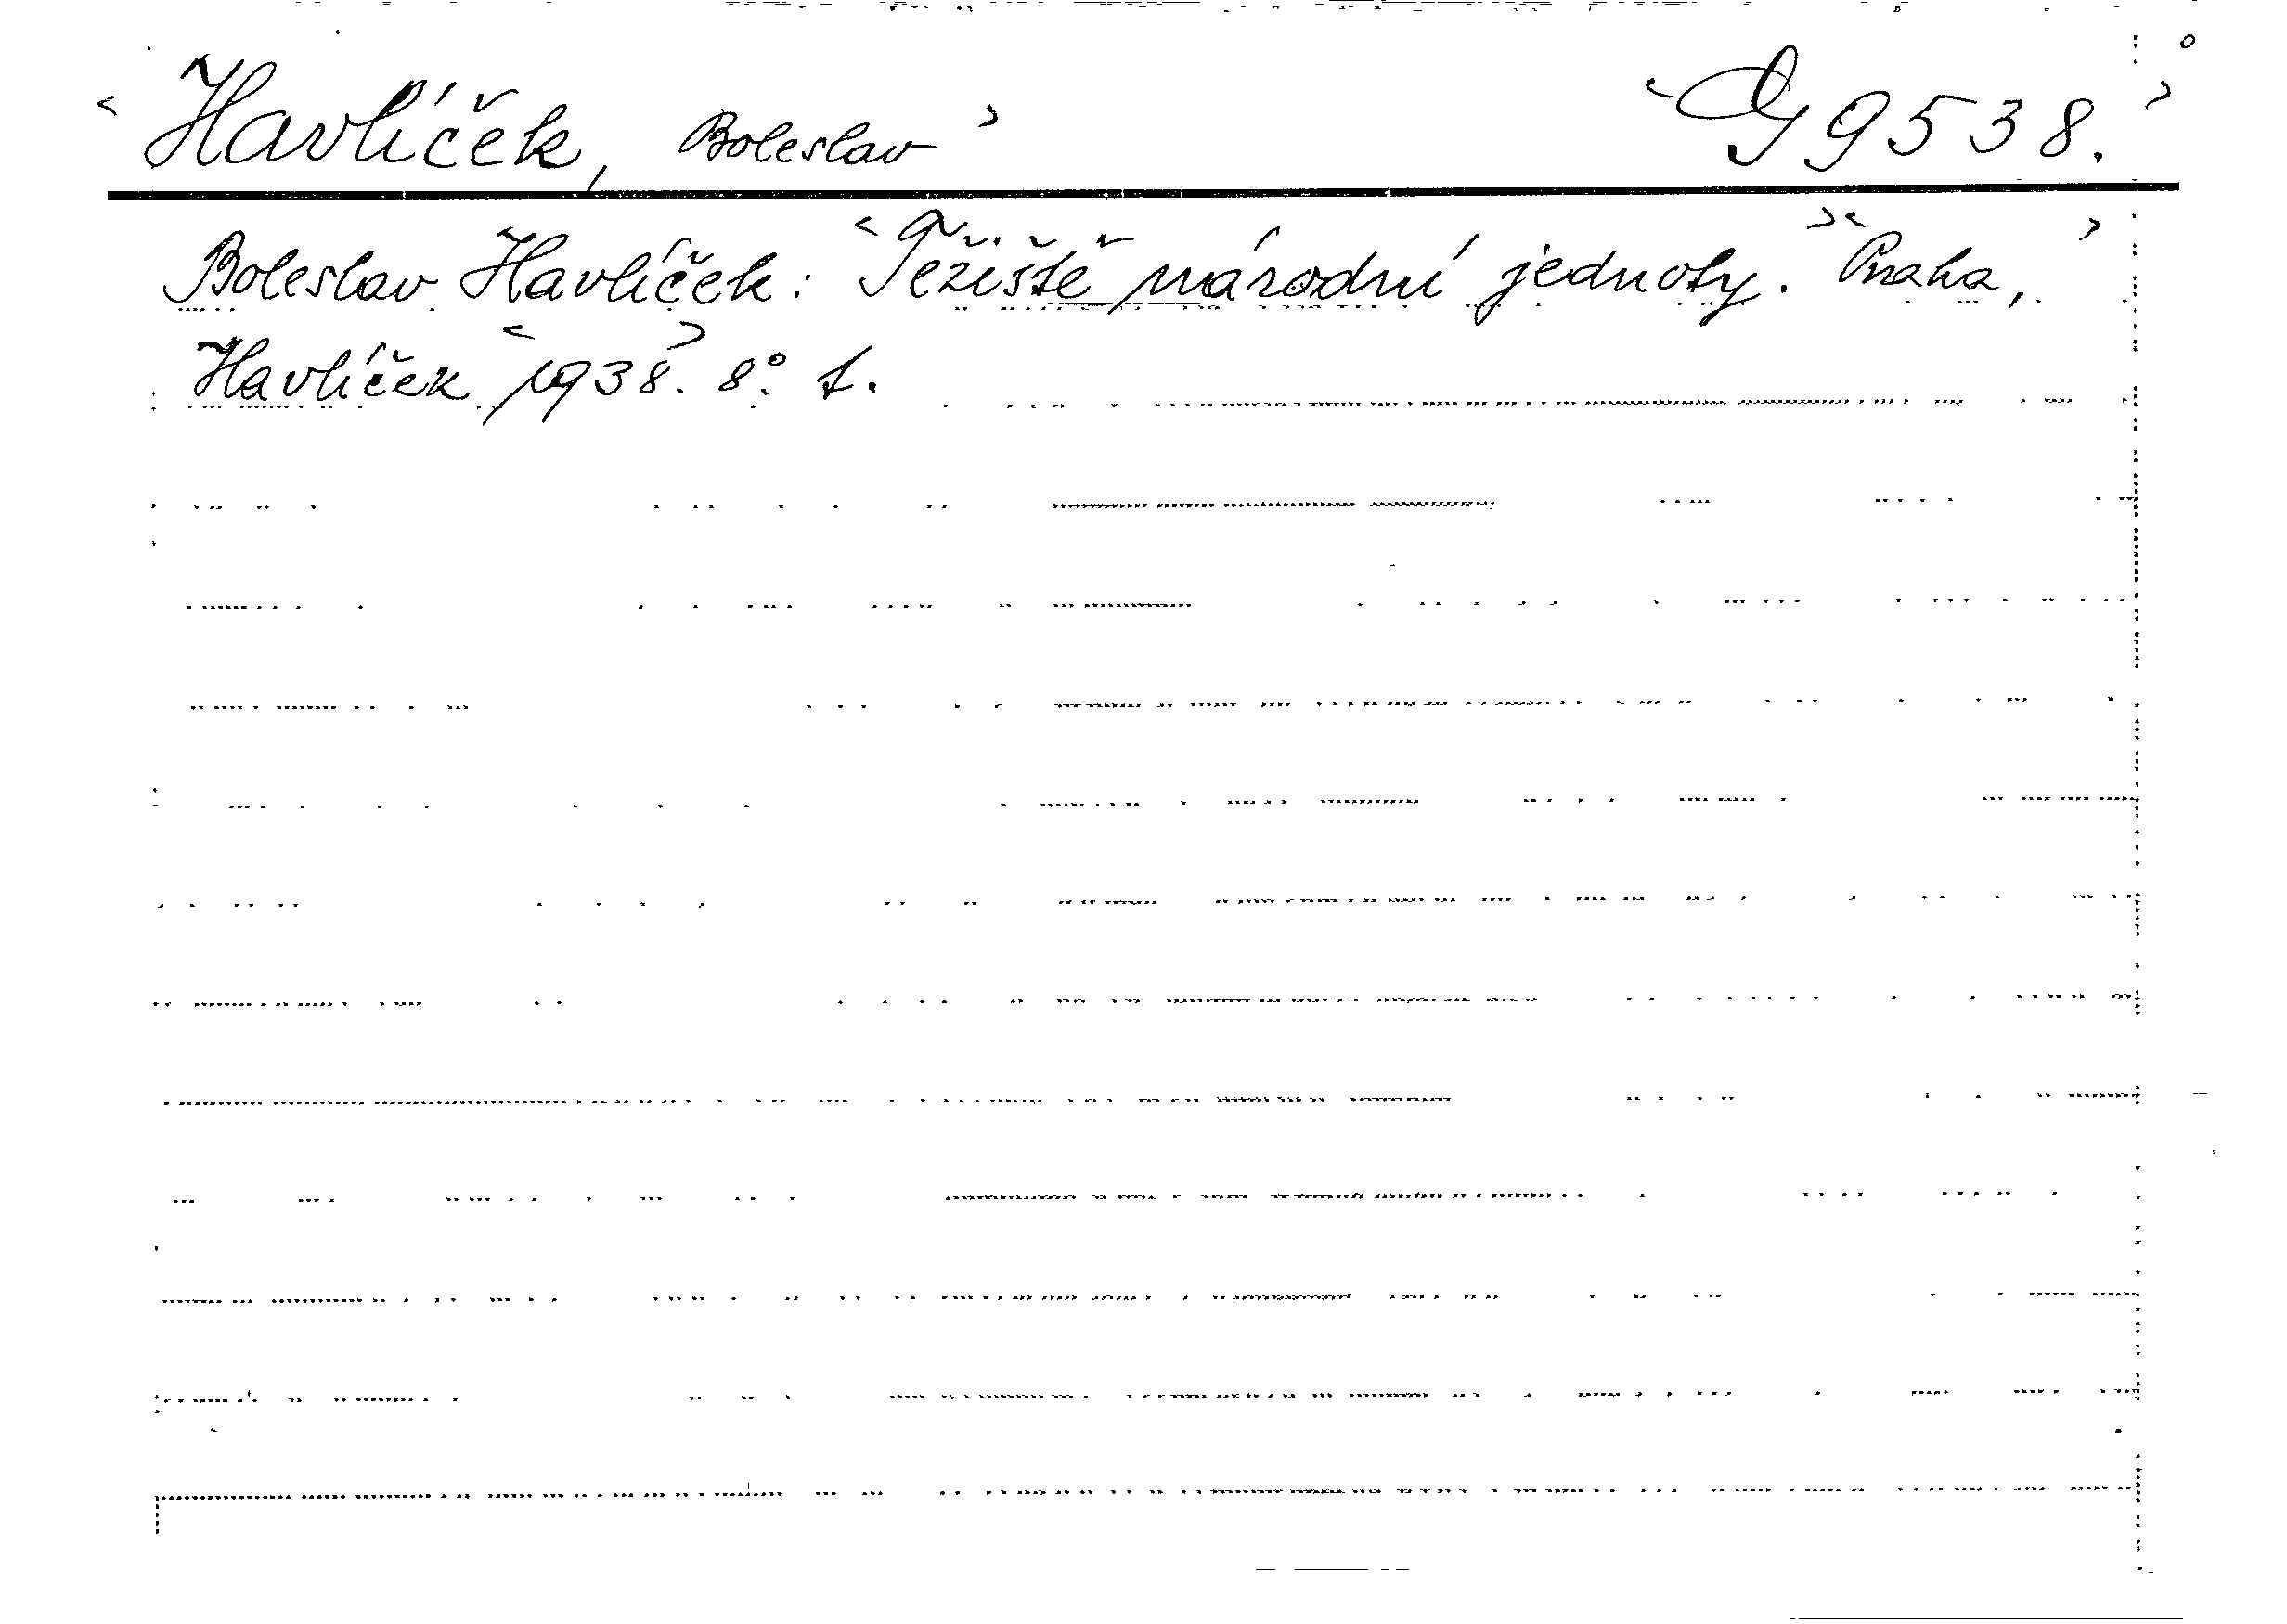 <Havlíček, Boleslav> <G 9538.>
Boleslav Havlíček: <Těžiště národní jednoty.> <Praha,>
Havlíček <1938>. 8°. 1.